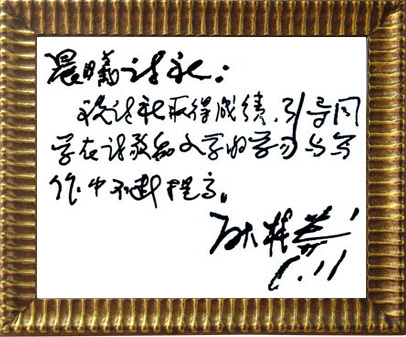 晨曦诗社：
祝诗社取得成绩，引导同
学在诗歌和文学的学习与写
作中不断提高。
耿林莽